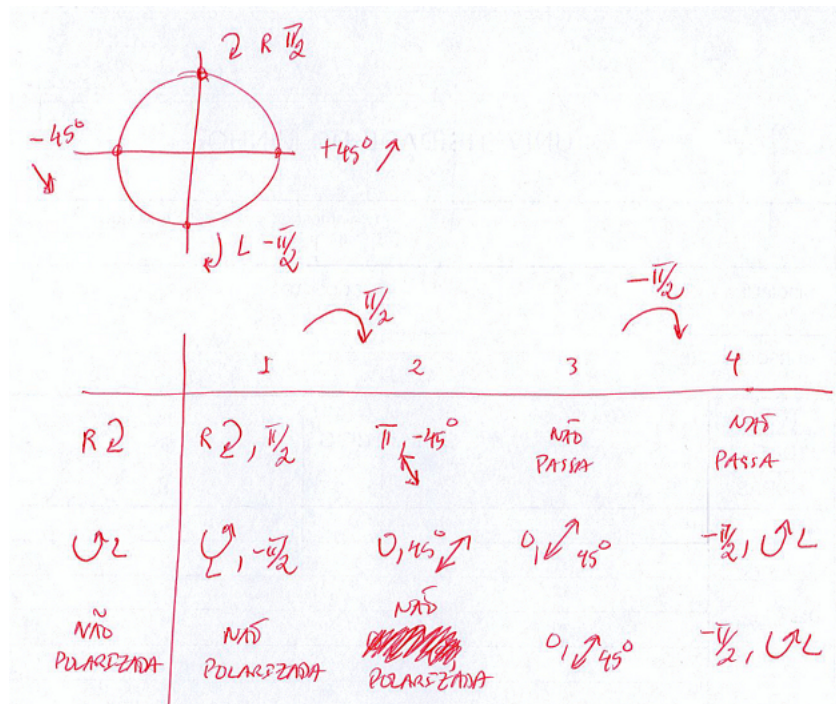 R π/2
-45°
+45°
L -π/2
π/2
-π/2
1 2 3 4
R R, π/2 π, -45° NÃO PASSA NÃO PASSA
L L, -π/2 0, 45° 0, 45° -π/2, L
NÃO POLARIZADA NÃO POLARIZADA NÃO POLARIZADA 0, 45° -π/2, L